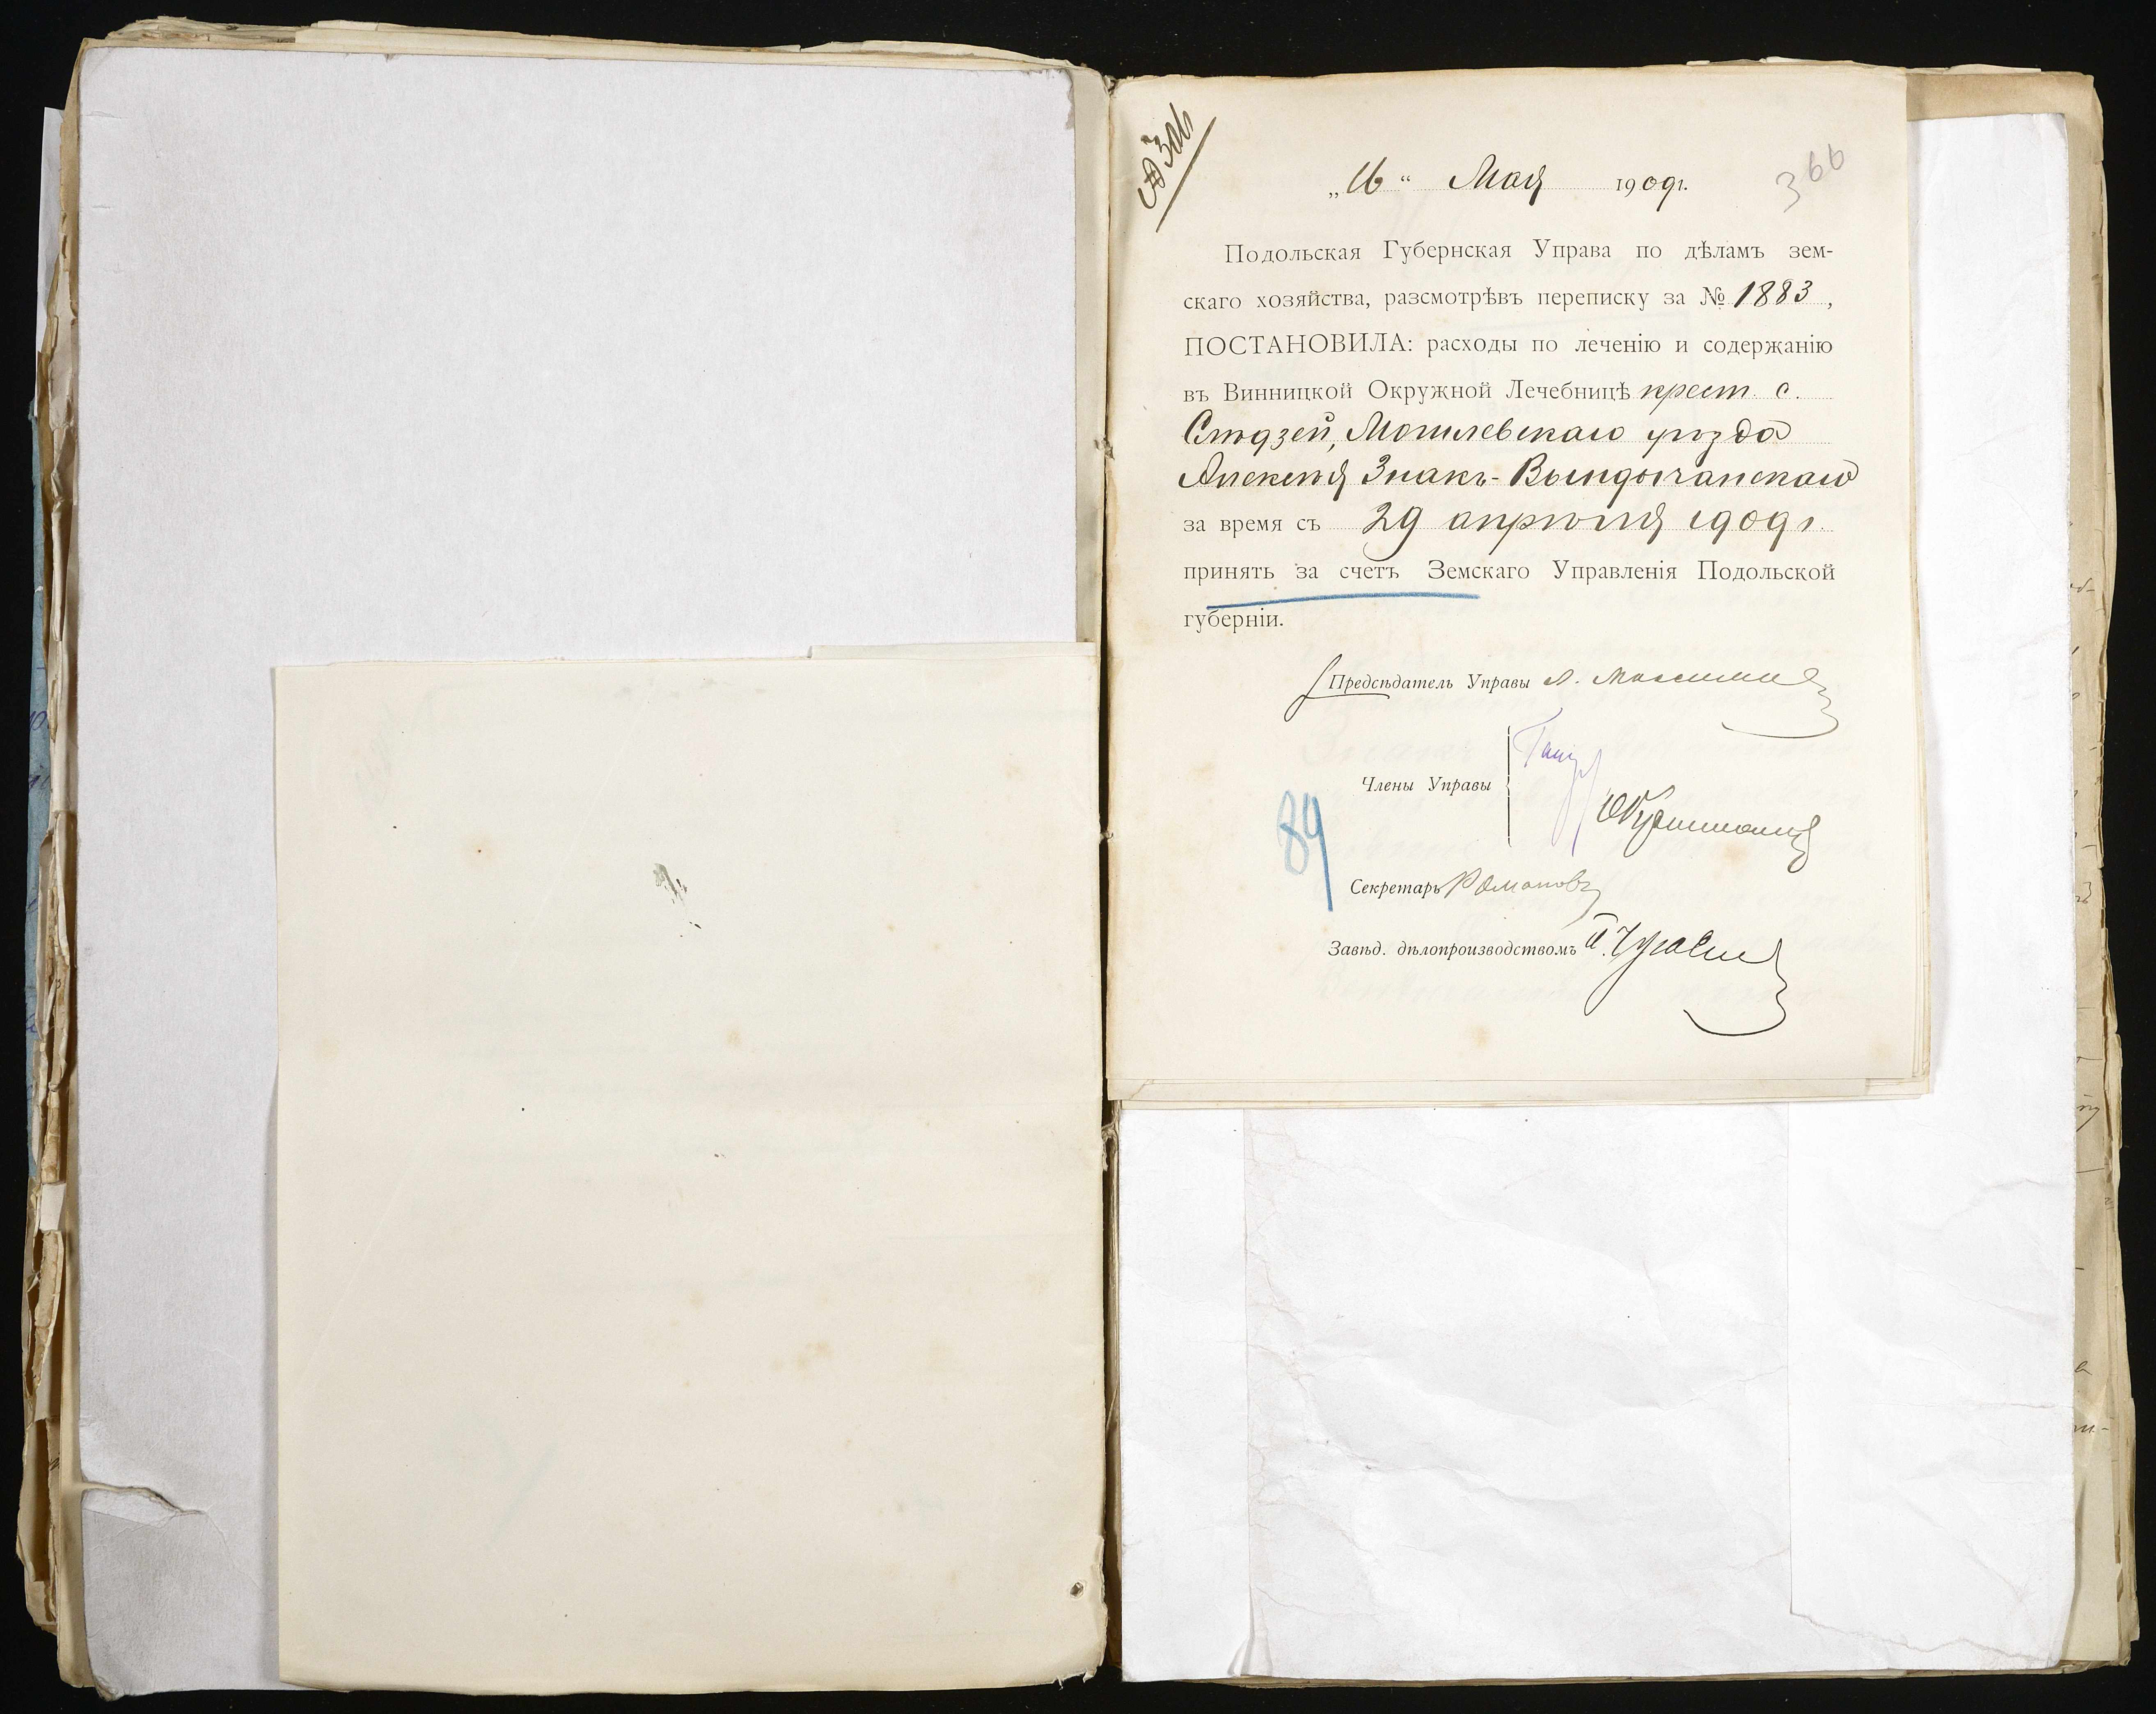 „16“ Мая 1909г.
366
Подольская Губернская Управа по дѣламъ зем-
скаго хозяйства, разсмотрѣвъ переписку за № 1883,
ПОСТАНОВИЛА: расходы по леченію и содержанію
въ Винницкой Окружной Лечебницѣ крест. с.
Могилевскаго уѣзда
Алексѣя Знакъ-
за время съ 29 апрѣля 1909 г.
принять за счетъ Земскаго Управленія Подольской
губерніи.
Предсѣдатель Управы
Члены Управы
89
Секретарь Романовъ
Завѣд. дѣлопроизводствомъ